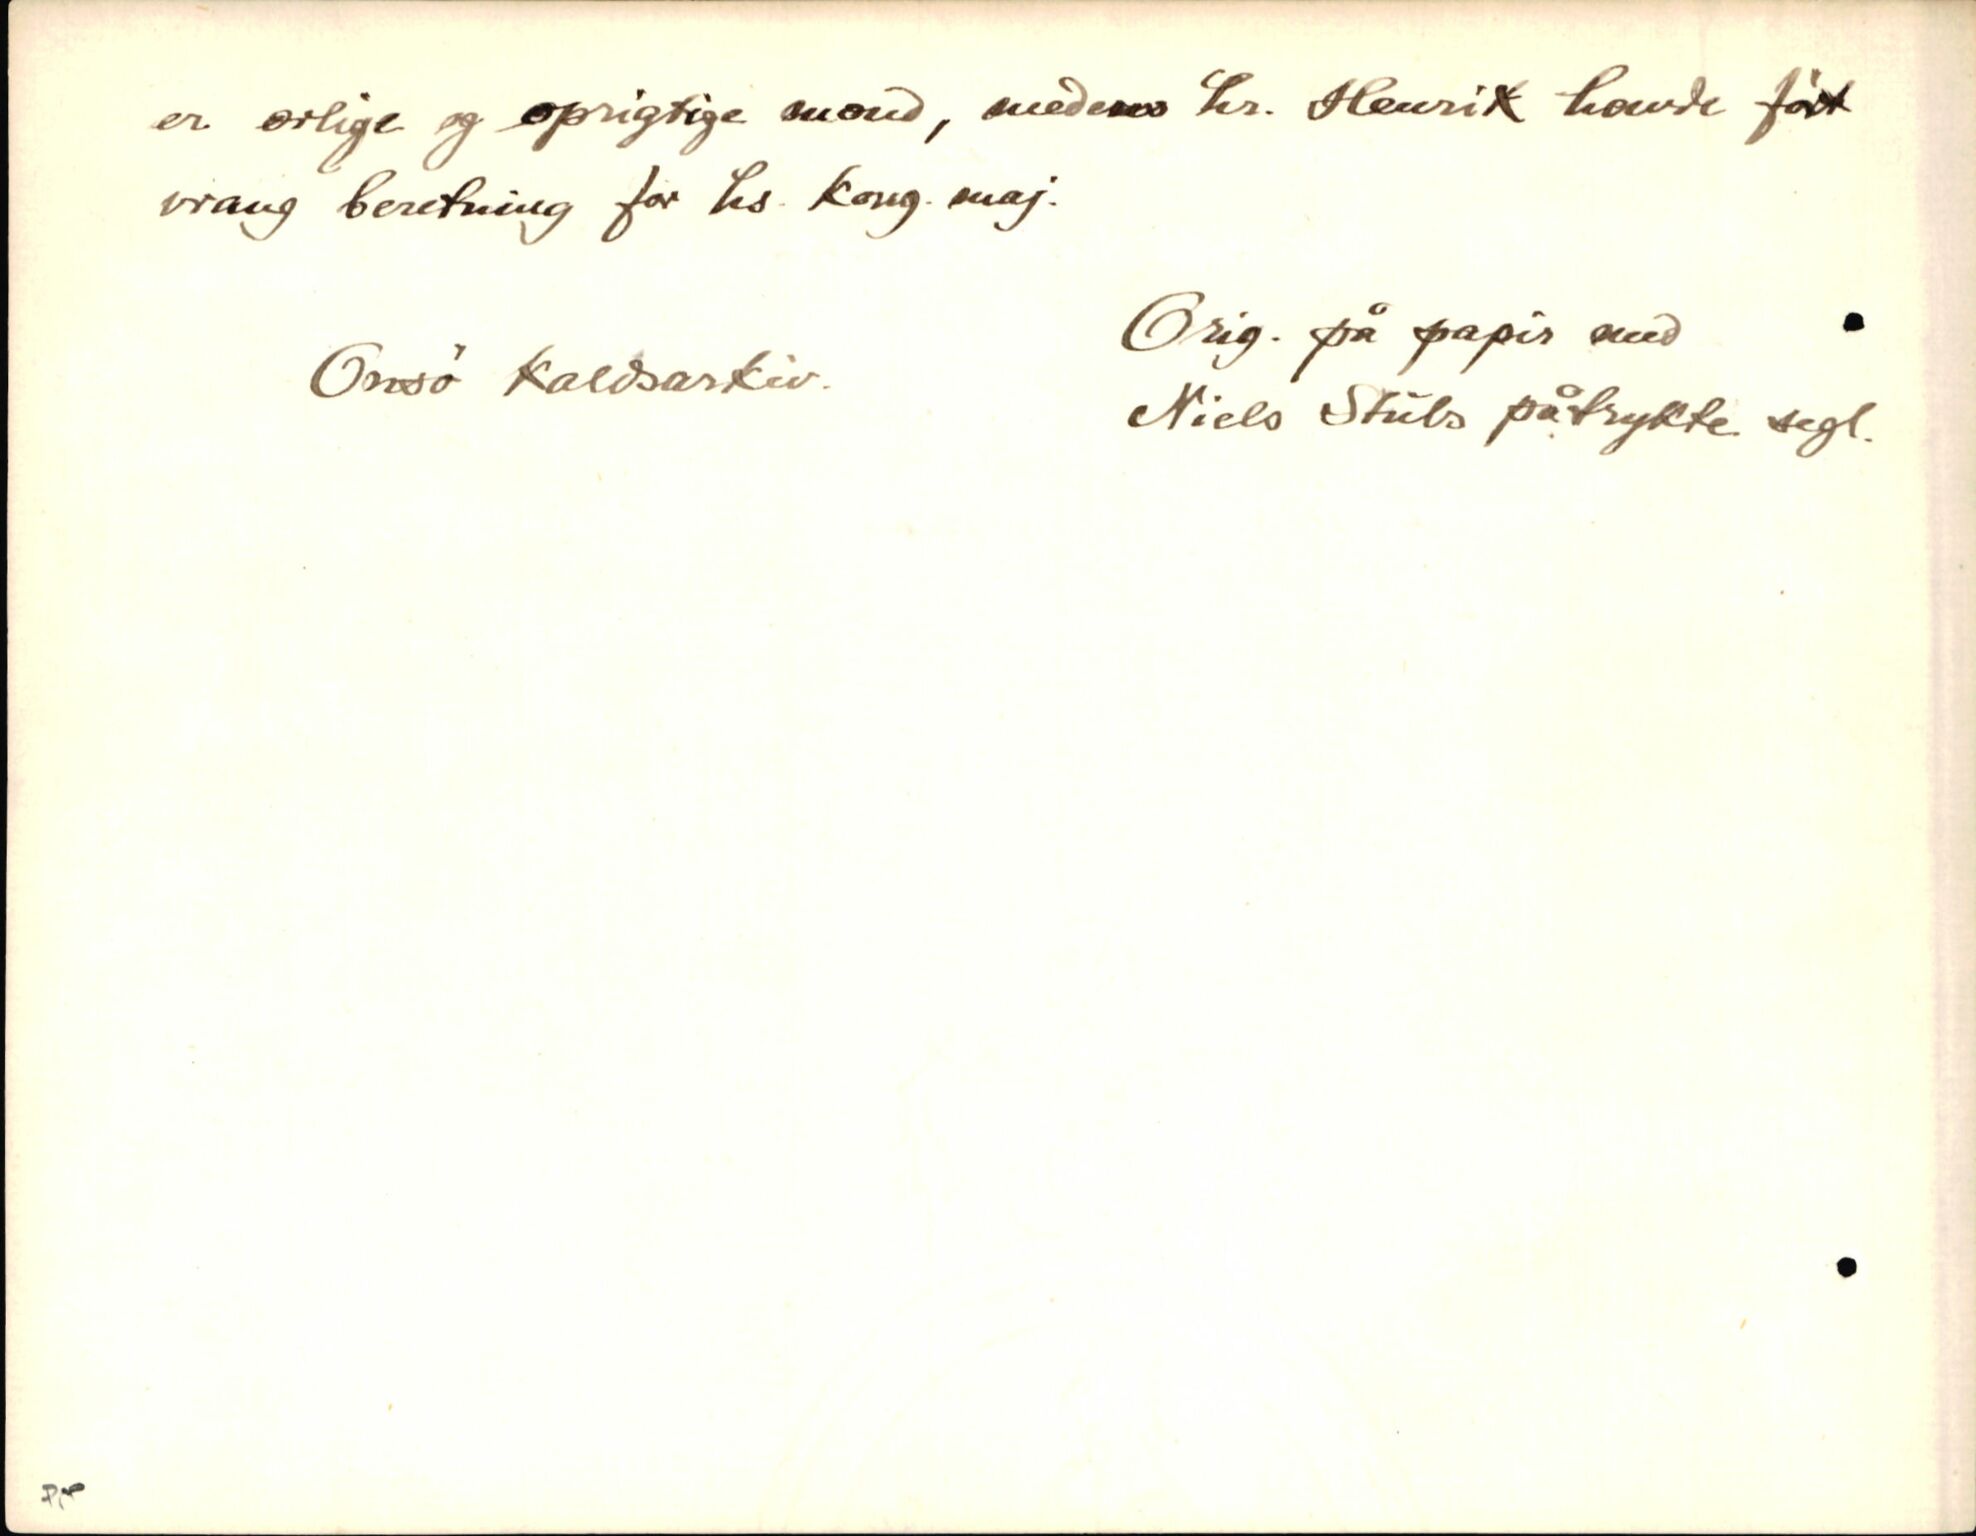 er ærlige og oprigtige mænd, medens hr. Henrik havde ført
vrang beretning for hs. kong. maj.
Orig. på papir med
Onsö Kaldsarkiv.
Niels Stubs påtrykte segl.